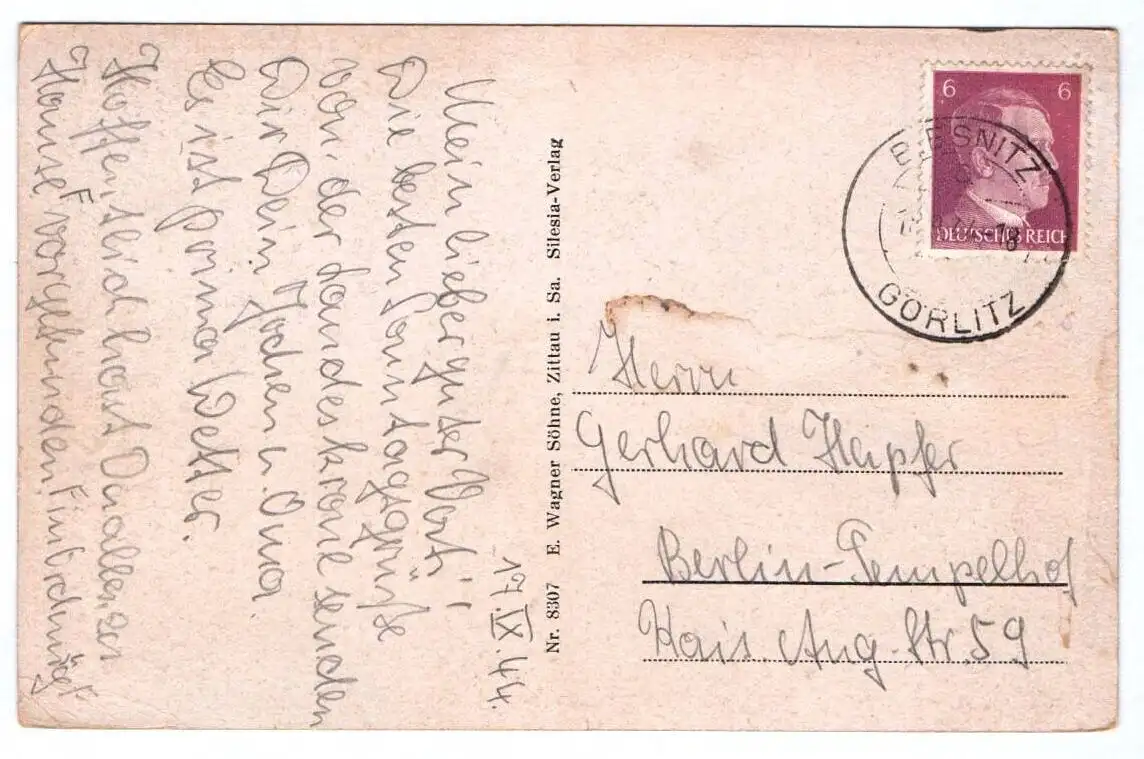 17.IX.44.
Mein lieber guter Vati
Die besten Sonntagsgrüße
von der Landeskrone senden
Dir Dein Jochen u. Oma.
Es ist prima Wetter.
Hoffentlich hast Du alles zu
Hause vorgefunden in Ordnung
Nr. 8307 E. Wagner Söhne, Zittau i. Sa. Silesia-Verlag
6 6
DEUTSCHES REICH
BIESNITZ
GÖRLITZ
Herrn
Gerhard
Berlin-Tempelhof
Kais. Aug. Str. 59